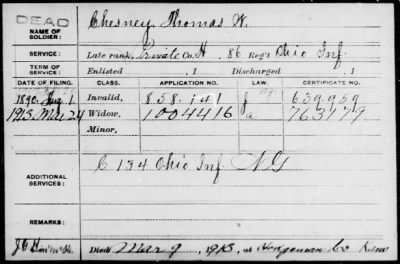 DEAD
NAME OF SOLDIER: Chesney Thomas W.
SERVICE: Late rank, Private Co. H, 86 Reg't Ohio Inf.
TERM OF SERVICE: Enlisted , 1 Discharged , 1
DATE OF FILING. CLASS. APPLICATION NO. CERTIFICATE NO.
1890, Aug 1 Invalid, 858.141 639.959
1913 Mar 24 Widow, 1004416 763179
Minor,
ADDITIONAL SERVICES: C 134 Ohio Inf NG
REMARKS:
Died Mar 9, 1913, at Hodgeman Co Kans